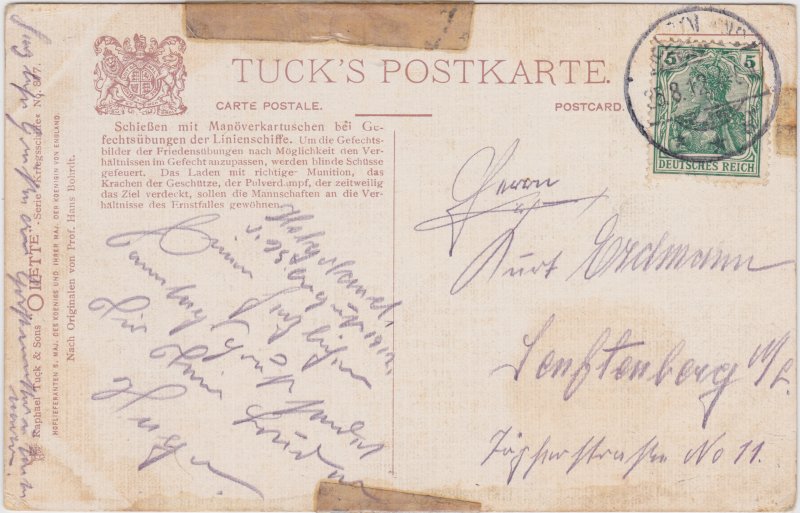 TUCK'S POSTKARTE.
CARTE POSTALE.
POSTCARD.
Schießen mit Manöverkartuschen bei Ge-
fechtsübungen der Linienschiffe. Um die Gefechts-
bilder der Friedensübungen nach Möglichkeit den Ver-
hältnissen im Gefecht anzupassen, werden blinde Schüsse
gefeuert. Das Laden mit richtiger Munition, das
Krachen der Geschütze, der Pulverdampf, der zeitweilig
das Ziel verdeckt, sollen die Mannschaften an die Ver-
hältnisse des Ernstfalles gewöhnen.
Raphael Tuck & Sons "OILETTE" Serie „Kriegsschiffe" No. 887.
HOFLIEFERANTEN S. MAJ. DES KOENIGS UND IHRER MAJ. DER KOENIGIN VON ENGLAND.
Nach Originalen von Prof. Hans Bohrdt.
5 5
DEUTSCHES REICH
Herrn
Kurt Erdmann
Senftenberg N/L.
Töpferstraße No 11.
Helgoland,
August 1912.
Einen
Sonntag Gruß sendet
Dir Dein Bruder